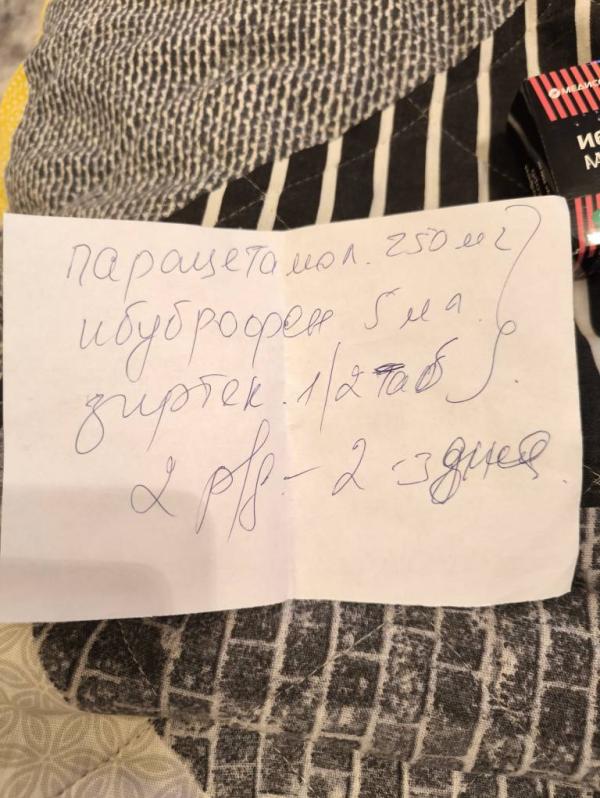 МЕДИСО
парацетамол. 250 мг
ибуброфен 5 мл.
зиртек. 1/2 таб.
2 р/д – 2 - 3 дня.